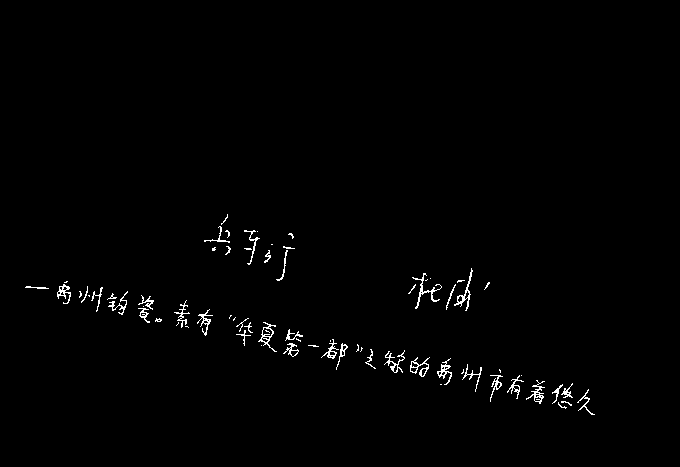 兵车行
杜甫
一禹州钧瓷。素有“华夏第一都”之称的禹州市有着悠久